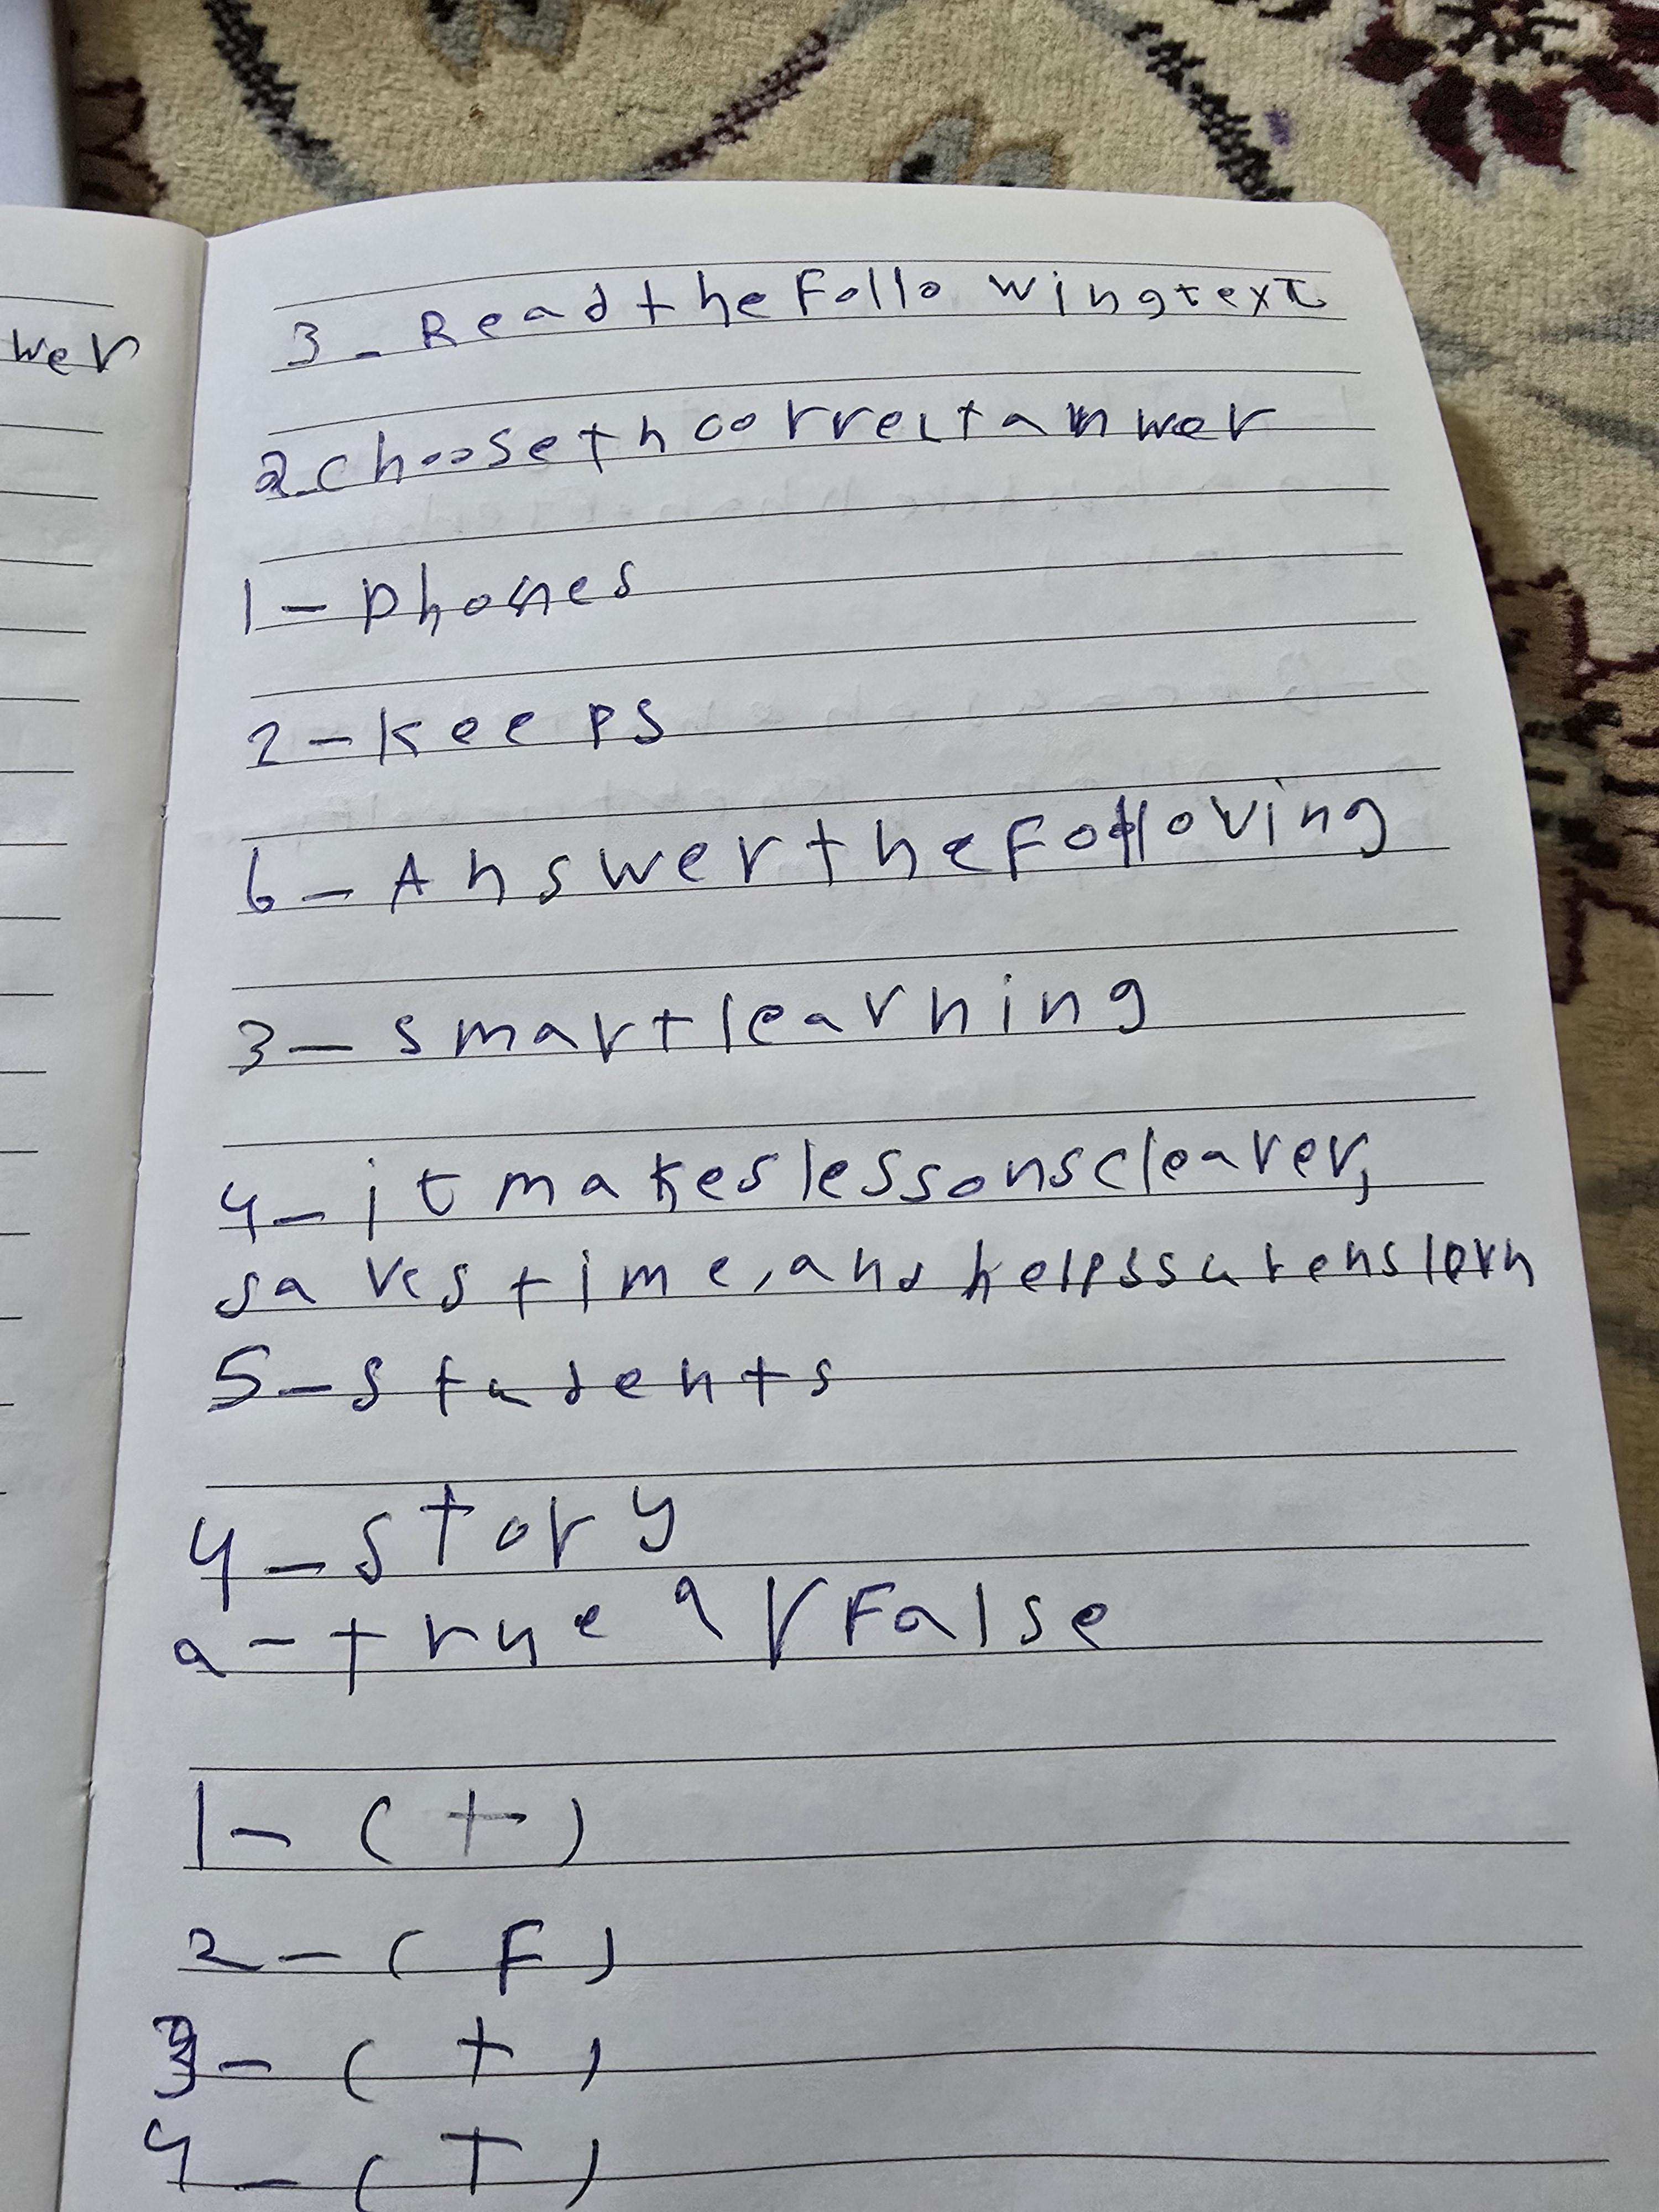 wer
3- Read the Follo wing text
a choose th correct anwer
1- phones
2- keeps
6- Answer the Following
3- smart learning
4- it makes lessons clearer,
saves time, and helps
5- students
4- story
a- true or False
1- (T)
2- (F)
3- (T)
4- (T)